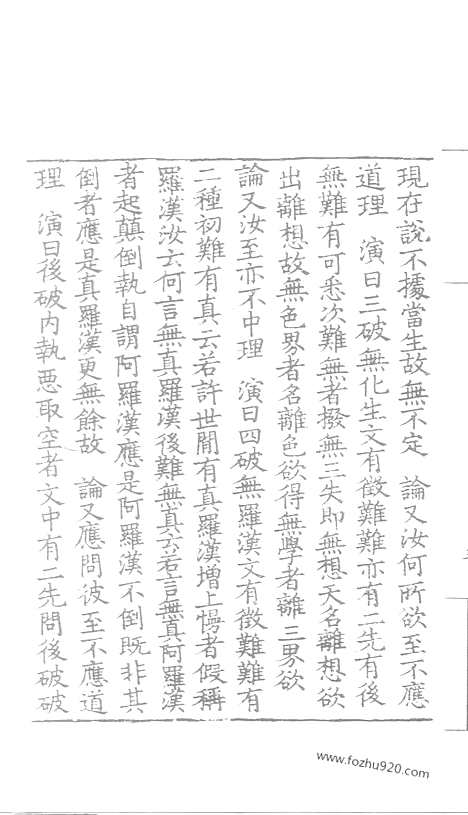 現在說不據當生故無不定　論又汝何所欲至不應
道理　演曰三破無化生文有徵難難亦有二先有後
無難有可悉次難無者撥無三失即無想天名離想欲
出離想故無色界者名離色欲得無學者離三界欲
論又汝至亦不中理　演曰四破無羅漢文有徵難難有
二種初難有真云若許世間有真羅漢增上慢者假稱
羅漢汝云何言無真羅漢後難無真云若言無真阿羅漢
者起顛倒執自謂阿羅漢應是阿羅漢不倒既非其
倒者應是真羅漢更無餘故　論又應問彼至不應道
理　演曰後破內執惡取空者文中有二先問後破破
www.fozhu920.com